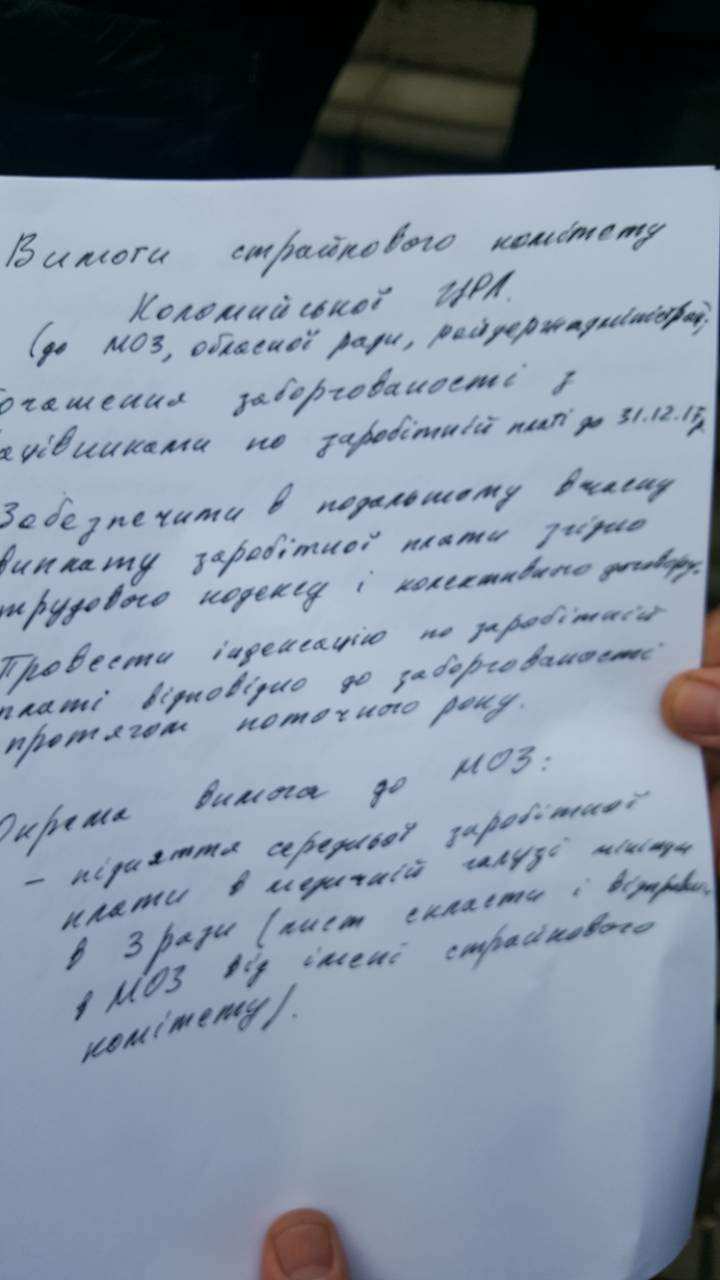 Вимоги страйкового комітету
Коломийської ЦРЛ.
(до МОЗ, обласної ради, райдержадміністрац.
огашення заборгованості з
ацівниками по заробітній платі до 31.12.17р
Забезпечити в подальшому вчасну
виплату заробітної плати згідно
трудового кодексу і колективного договору.
Провести індексацію по заробітній
платі відповідно до заборгованості
протягом поточного року.
Окрема вимога до МОЗ:
– підняття середньої заробітної
плати в медичній галузі мінімум
в 3 рази (лист скласти і відправи.
в МОЗ від імені страйкового
комітету).